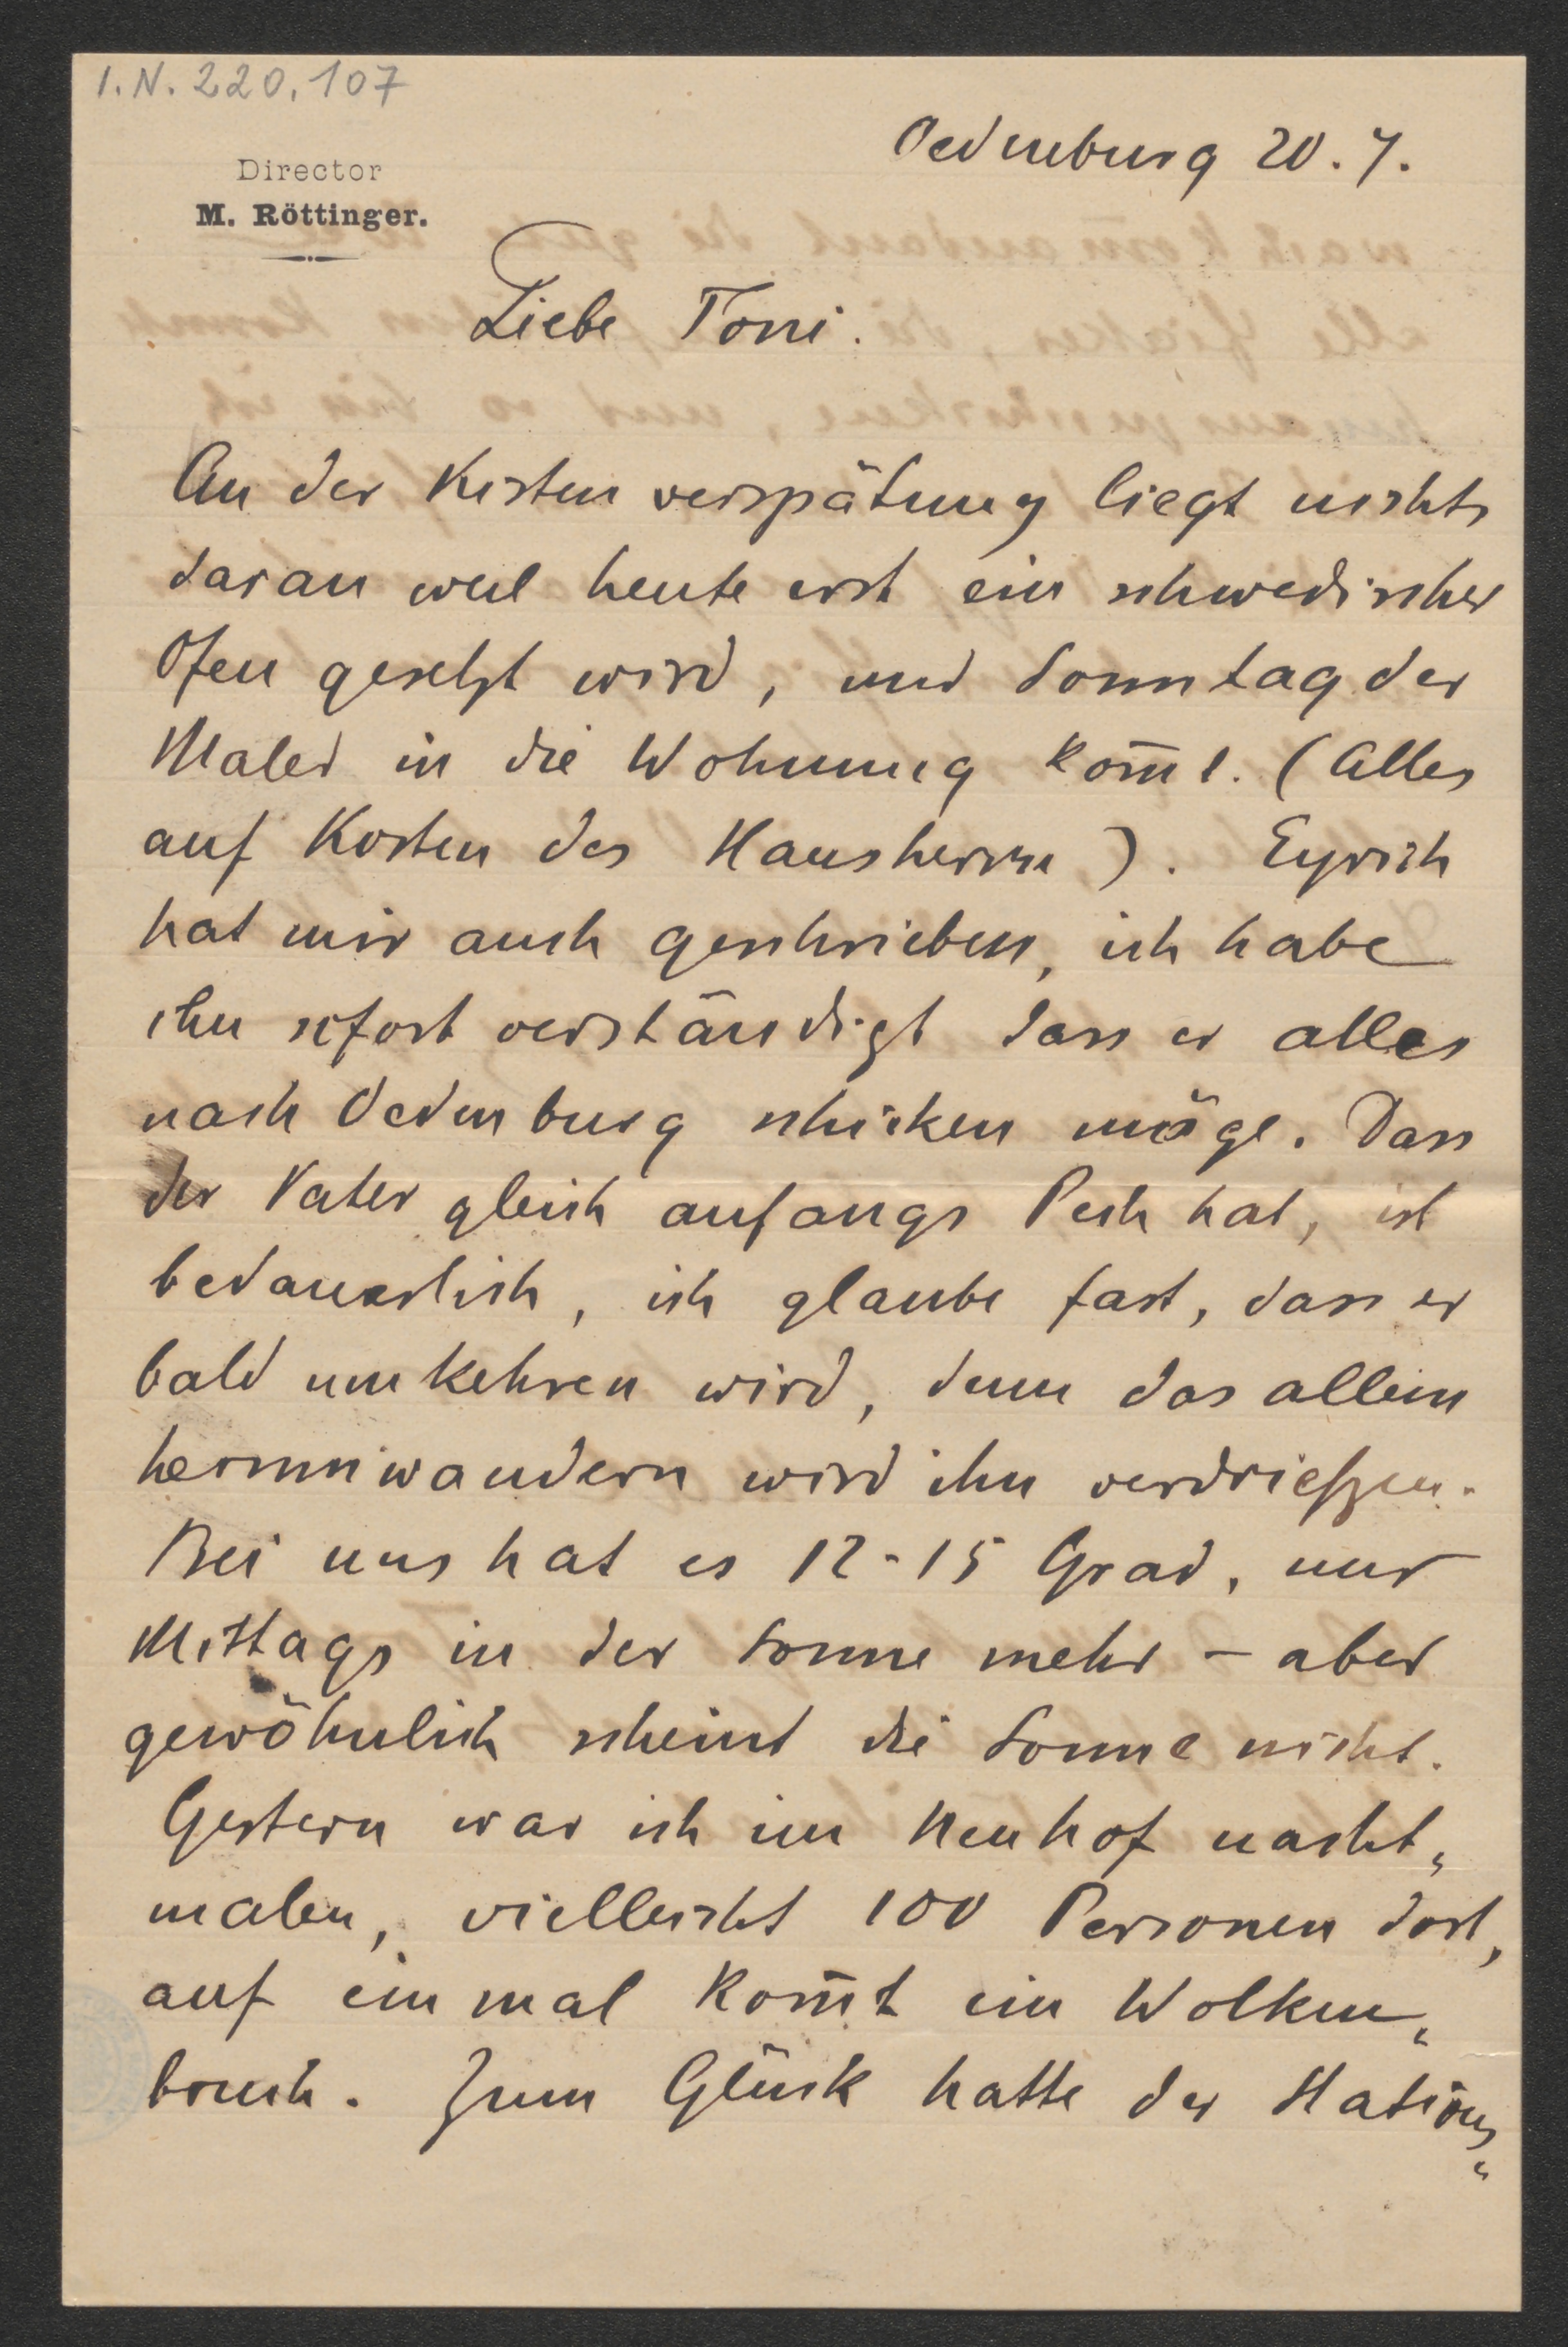 I. N. 220.107
Oedenburg 20. 7.
Director
M. Röttinger.
Liebe Toni.
An der Kistenverspätung liegt nichts
daran weil heute erst ein schwedischer
Ofen gesetzt wird, und Sonntag der
Maler in die Wohnung kom̄t. (Alles
auf Kosten des Hausherrn). Eyrich
hat mir auch geschrieben, ich habe
ihn sofort verständigt dass er alles
nach Oedenburg schicken möge. Dass
der Vater gleich anfangs Pech hat, ist
bedauerlich, ich glaube fast, dass er
bald umkehren wird, denn das allein
herumwandern wird ihn verdrießen.
Bei uns hat es 12-15 Grad, nur
Mittags in der Sonne mehr – aber
gewöhnlich scheint die Sonne nicht.
Gestern war ich im Neuhof nacht„
malen, vielleicht 100 Personen dort,
auf einmal kom̄t ein Wolken„
bruch. Zum Glück hatte der Stations„